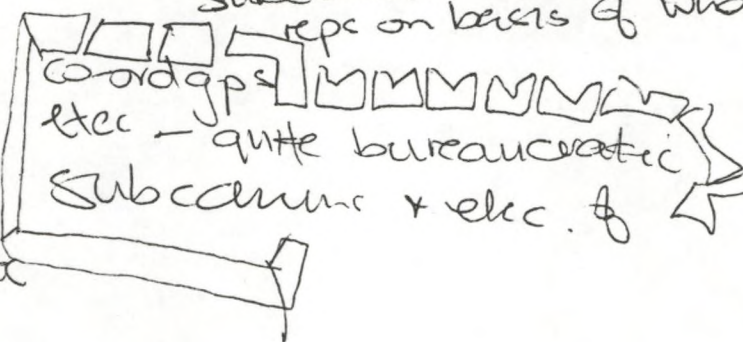 reps on basis of
co-ord gps
etc - quite bureaucratic
subcomm & elec. of